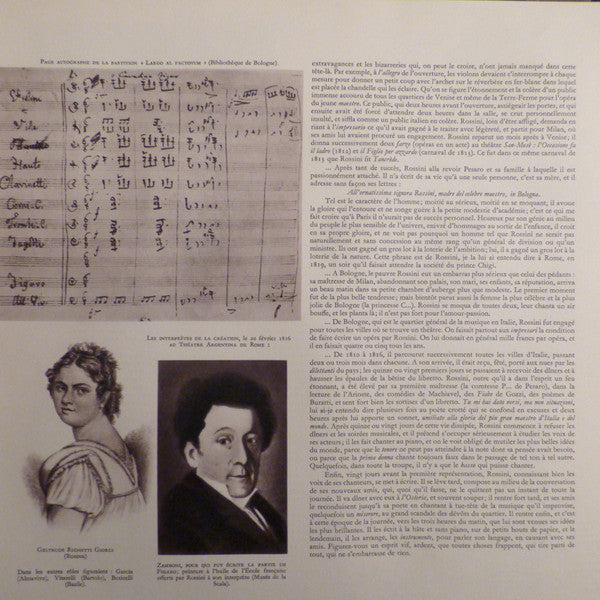 Page autographe de la partition « Largo al factotum » (Bibliothèque de Bologne).
Viole
Flauto
Clarinetti
Corni C.
Fagotti
Figaro
Les interprètes de la création, le 20 février 1816
au Théâtre Argentina de Rome :
Geltrude Righetti Giorgi
(Rosina)
Dans les autres rôles figuraient : Garcia
(Almaviva), Vitarelli (Bartolo), Botticelli
(Basile).
Zamboni, pour qui fut écrite la partie de
Figaro; peinture à l'huile de l'École française
offerte par Rossini à son interprète (Musée de la
Scala).
extravagances et les bizarreries qui, on peut le croire, n'ont jamais manqué dans cette
tête-là. Par exemple, à l'allegro de l'ouverture, les violons devaient s'interrompre à chaque
mesure pour donner un petit coup avec l'archet sur le réverbère en fer-blanc dans lequel
est placée la chandelle qui les éclaire. Qu'on se figure l'étonnement et la colère d'un public
immense accouru de tous les quartiers de Venise et même de la Terre-Ferme pour l'opéra
du jeune maestro. Ce public, qui deux heures avant l'ouverture, assiégeait les portes, et qui
ensuite avait été forcé d'attendre deux heures dans la salle, se crut personnellement
insulté, et siffla comme un public italien en colère. Rossini, loin d'être affligé, demanda en
riant à l'impresario ce qu'il avait gagné à le traiter avec légèreté, et partit pour Milan, où
ses amis lui avaient procuré un engagement. Rossini reparut un mois après à Venise; il
donna successivement deux farze (opéras en un acte) au théâtre San-Mosè : l'Occasione fa
il ladro (1812) et il Figlio per azzardo (carnaval de 1813). Ce fut dans ce même carnaval de
1813 que Rossini fit Tancrède.
... Après tant de succès, Rossini alla revoir Pesaro et sa famille à laquelle il est
passionnément attaché. Il n'a écrit de sa vie qu'à une seule personne, c'est sa mère, et il
adresse sans façon ses lettres :
All'ornatissima signora Rossini, madre del celebre maestro, in Bologna.
Tel est le caractère de l'homme; moitié au sérieux, moitié en se moquant; il avoue
la gloire qui l'entoure et ne songe guère à la petite moderie d'académie; c'est ce qui me
fait croire qu'à Paris il n'aurait pas de succès personnel. Heureux par son génie au milieu
du peuple le plus sensible de l'univers, enivré d'hommages au sortir de l'enfance, il croit
en sa propre gloire, et ne voit pas pourquoi un homme tel que Rossini ne serait pas
naturellement et sans concession au même rang qu'un général de division ou qu'un
ministre. Ils ont gagné un gros lot à la loterie de l'ambition; lui, il a gagné un gros lot à la
loterie de la nature. Cette phrase est de Rossini, je la lui ai entendu dire à Rome, en
1819, un soir qu'il faisait attendre la société du prince Chigi.
... A Bologne, le pauvre Rossini eut un embarras plus sérieux que celui des pédants :
sa maîtresse de Milan, abandonnant son palais, son mari, ses enfants, sa réputation, arriva
un beau matin dans sa petite chambre d'auberge plus que modeste. Le premier moment
fut de la plus belle tendresse; mais bientôt parut aussi la femme la plus célèbre et la plus
jolie de Bologne (la princesse C...). Rossini se moqua de toutes deux, leur chanta un air
bouffe, et les planta là; il n'est pas fort pour l'amour-passion.
... De Bologne, qui est le quartier général de la musique en Italie, Rossini fut engagé
pour toutes les villes où se trouve un théâtre. On faisait partout aux imprésari la condition
de faire écrire un opéra par Rossini. On lui donnait en général mille francs par opéra, et
il en faisait quatre ou cinq tous les ans.
... De 1810 à 1816, il parcourut successivement toutes les villes d'Italie, passant
deux ou trois mois dans chacune. A son arrivée, il était reçu, fêté, porté aux nues par les
dilettanti du pays; les quinze ou vingt premiers jours se passaient à recevoir des dîners et à
hausser les épaules de la bêtise du libretto. Rossini, outre qu'il a dans l'esprit un feu
étonnant, a été élevé par sa première maîtresse (la comtesse P... de Pesaro), dans la
lecture de l'Arioste, des comédies de Machiavel, des Fiabe de Gozzi, des poèmes de
Buratti, et sent fort bien les sottises d'un libretto. Tu mi hai dato versi, ma non situazioni,
lui ai-je entendu dire plusieurs fois au poète crotté qui se confond en excuses et deux
heures après lui apporte un sonnet, umiliato alla gloria del più gran maestro d'Italia e del
mondo. Après quinze ou vingt jours de cette vie dissipée, Rossini commence à refuser les
dîners et les soirées musicales, et il prétend s'occuper sérieusement à étudier les voix de
ses acteurs; il les fait chanter au piano, et on le voit obligé de mutiler les plus belles idées
du monde, parce que le tenore ne peut pas atteindre à la note dont sa pensée avait besoin,
ou parce que la prima donna chante toujours faux dans le passage de tel ton à tel autre.
Quelquefois, dans toute la troupe, il n'y a que le basso qui puisse chanter.
Enfin, vingt jours avant la première représentation, Rossini, connaissant bien les
voix de ses chanteurs, se met à écrire. Il se lève tard, compose au milieu de la conversation
de ses nouveaux amis, qui, quoi qu'il fasse, ne le quittent pas un instant de toute la
journée. Il va dîner avec eux à l'Osterie, et souvent souper; il rentre fort tard, et ses amis
le reconduisent jusqu'à sa porte en chantant à tue-tête de la musique qu'il improvise,
quelquefois un miserere, au grand scandale des dévots du quartier. Il rentre enfin, et c'est
à cette époque de la journée, vers les trois heures du matin, que lui sont venues ses idées
les plus brillantes. Il les écrit à la hâte et sans piano, sur de petits bouts de papier, et le
lendemain, il les arrange, les instrumente, pour parler son langage, en causant avec ses
amis. Figurez-vous un esprit vif, ardent, que toutes choses frappent, qui tire parti de
tout, qui ne s'embarrasse de rien.